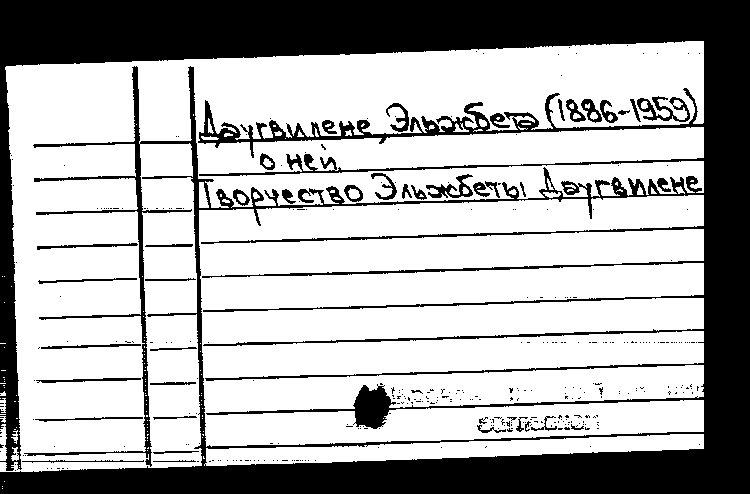 Даугвилене, Эльжбета (1886-1959)
о ней
Творчество Эльжбеты Даугвилене